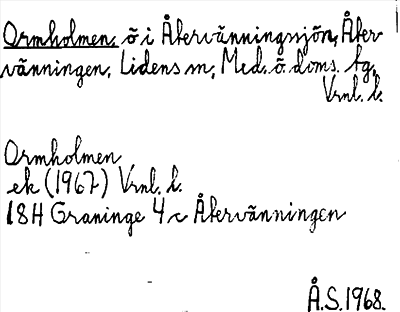 Ormholmen, ö i Återvänningssjön, Åter-
vänningen, Lidens sn, Med. ö. doms. tg,
Vrnl. l.
Ormholmen
ek (1967) Vrnl. l.
18H Graninge 4c Återvänningen
Å.S. 1968.